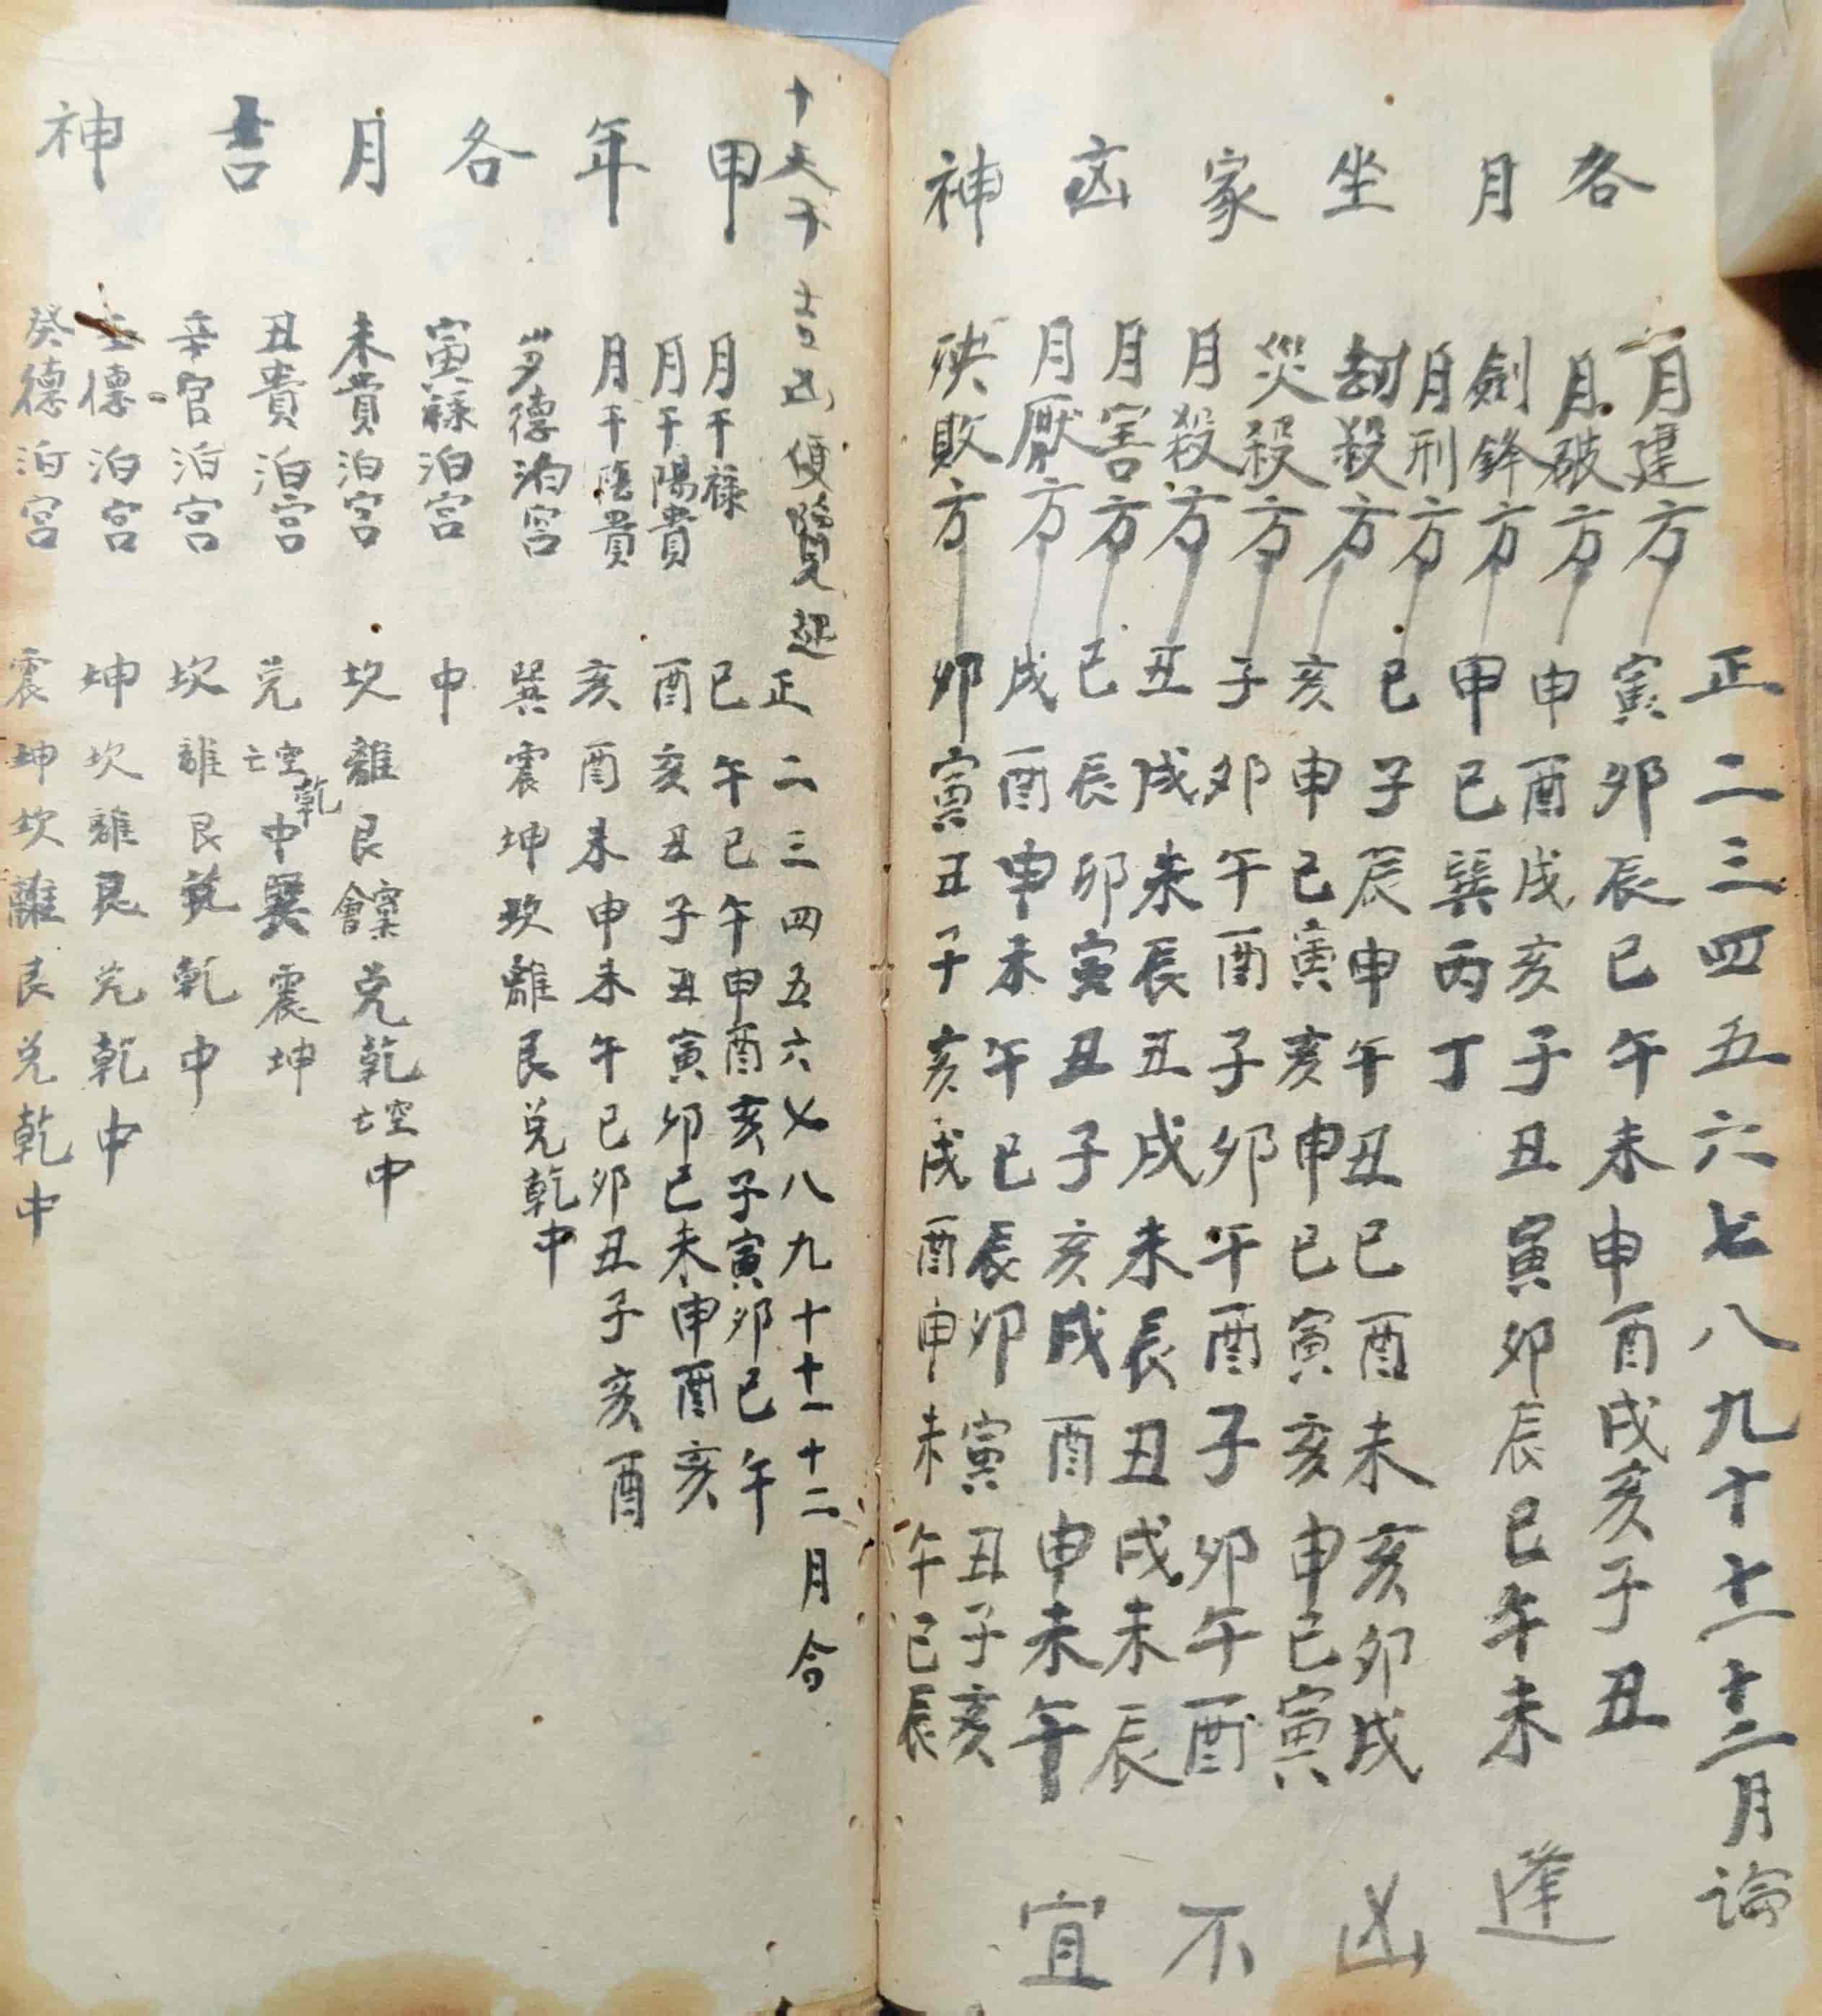 各月坐家凶神
正二三四五六七八九十十一十二月論
月建方 寅卯辰巳午未申酉戌亥子丑
月破方 申酉戌亥子丑寅卯辰巳午未
劍鋒方 甲巳巽丙丁
月刑方 巳子辰申午丑巳酉未亥卯戌
劫殺方 亥申巳寅亥申巳寅亥申巳寅
災殺方 子卯午酉子卯午酉子卯午酉
月殺方 丑戌未辰丑戌未辰丑戌未辰
月害方 巳辰卯寅丑子亥戌酉申未午
月厭方 戌酉申未午巳辰卯寅丑子亥
殃敗方 卯寅丑子亥戌酉申未午巳辰
逢凶不宜
十天干吉凶便覽起
甲年各月吉神
正二三四五六七八九十十一十二月合
月干祿 巳午巳午申酉亥子寅卯巳午
月干陽貴 酉亥丑子丑寅卯巳未申酉亥
月干陰貴 亥酉未申未午巳卯丑子亥酉
歲德泊宮 巽震坤坎離艮兌乾中
寅祿泊宮 中
未貴泊宮 坎離艮兌乾空亡中
丑貴泊宮 兌空亡乾中巽震坤
辛官泊宮 坎離艮兌乾中
壬德泊宮 坤坎離艮兌乾中
癸德泊宮 震坤坎離艮兌乾中